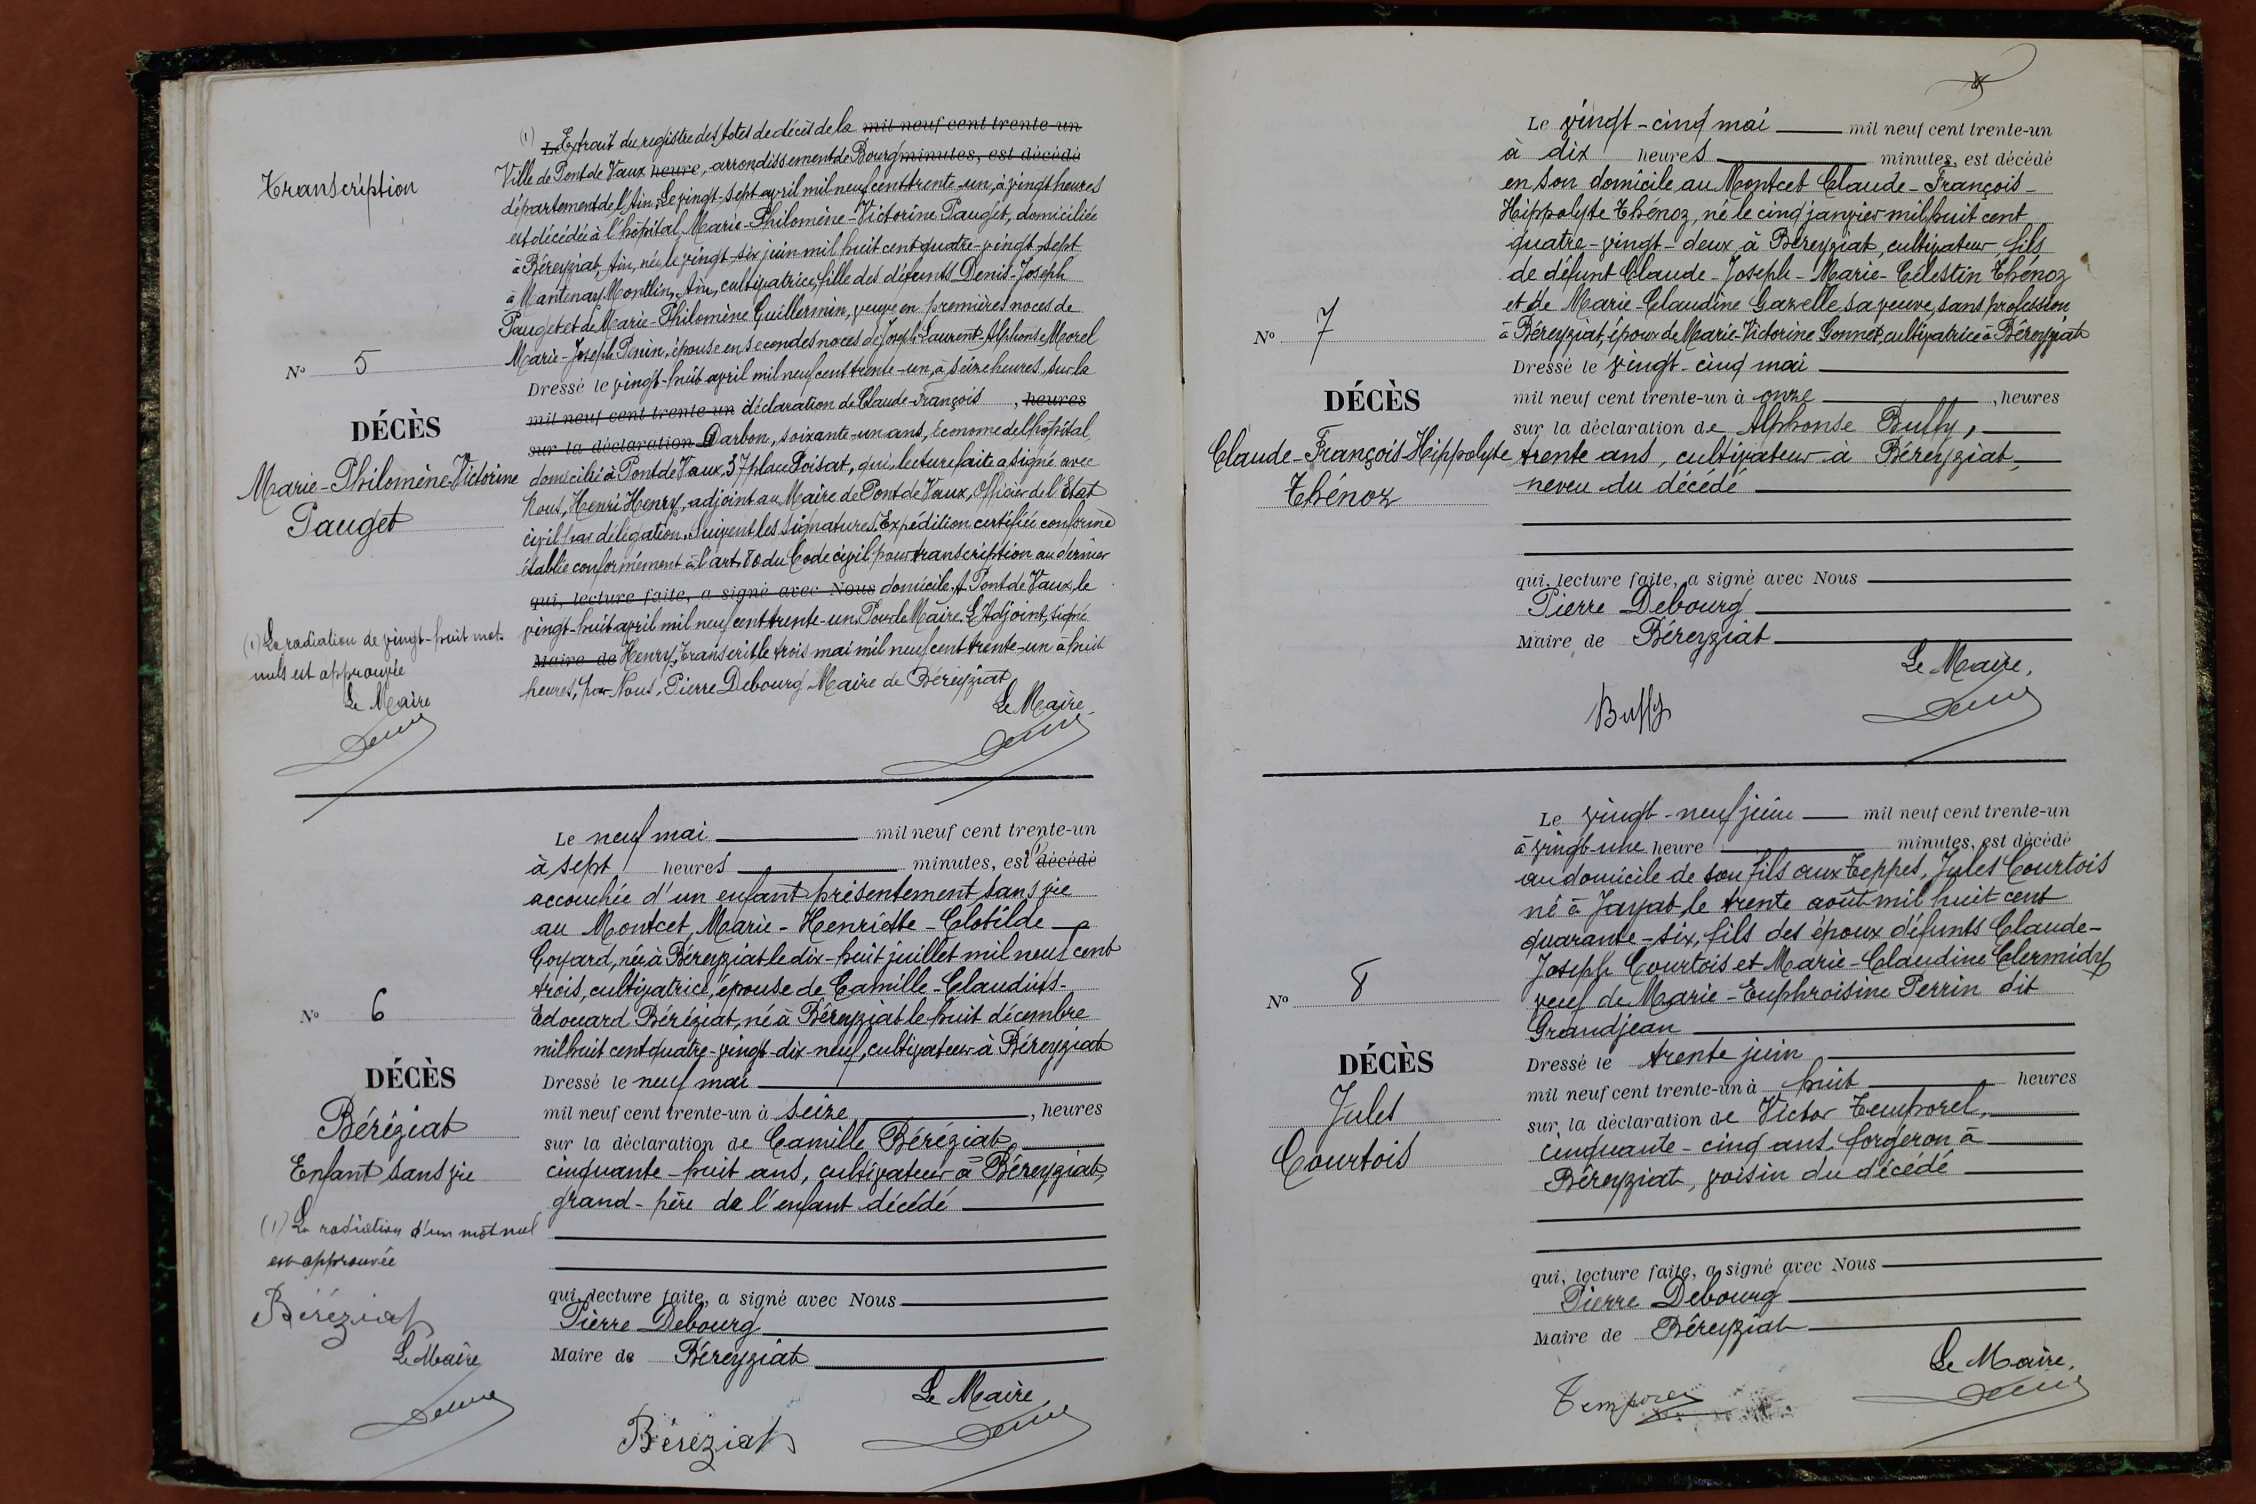 Transcription
N° 5
DÉCÈS
Marie-Philomène-Victorine
Pauget
(1) La radiation de vingt-huit mots
nuls est approuvée
Le Maire
(1) L Extrait du registre des actes de décès de la mil neuf cent trente-un
Ville de Pont de Vaux heure, arrondissement de Bourg minutes, est décédé
département de l'Ain. Le vingt-sept avril mil neuf cent trente-un, à vingt heures
est décédée à l'hôpital, Marie-Philomène-Victorine Pauget, domiciliée
à Béreyziat, Ain, née le vingt-six juin mil huit cent quatre-vingt-sept
à Mantenay-Montlin, Ain, cultivatrice, fille des défunts Denis-Joseph
Pauget et de Marie-Philomène Guillermin, veuve en premières noces de
Marie-Joseph Penin, épouse en secondes noces de Joseph-Laurent-Alphonse Morel
Dressé le vingt-huit avril mil neuf cent trente-un, à seize heures, sur la
mil neuf cent trente-un déclaration de Claude-François , heures
sur la déclaration Darbon, soixante-un ans, économe de l'hôpital,
domicilié à Pont de Vaux, 37 place Poisat, qui, lecture faite a signé avec
Nous, Henri Henry, adjoint au Maire de Pont de Vaux, Officier de l'État
civil par délégation. Suivent les signatures. Expédition certifiée conforme
établie conformément à l'art. 80 du Code civil pour transcription au dernier
qui, lecture faite, a signé avec Nous domicile. A Pont de Vaux, le
vingt-huit avril mil neuf cent trente-un. Pour le Maire. L'Adjoint, signé
Maire de Henry. Transcrit le trois mai mil neuf cent trente-un à huit
heures, par Nous, Pierre Debourg Maire de Béreyziat
Le Maire,
N° 6
DÉCÈS
Béréziat
Enfant sans vie
(1) La radiation d'un mot nul
est approuvée
Béréziat
Le Maire
Le neuf mai mil neuf cent trente-un
à sept heures minutes, est (1) décédé
accouchée d'un enfant présentement sans vie
au Montcet, Marie-Henriette-Clotilde
Goyard, née à Béreyziat le dix-huit juillet mil neuf cent
trois, cultivatrice, épouse de Camille-Claudius-
Edouard Béréziat, né à Béreyziat le huit décembre
mil huit cent quatre-vingt-dix-neuf, cultivateur à Béreyziat
Dressé le neuf mai
mil neuf cent trente-un à seize , heures
sur la déclaration de Camille Béréziat,
cinquante-huit ans, cultivateur à Béreyziat,
grand-père de l'enfant décédé
qui, lecture faite, a signé avec Nous
Pierre Debourg
Maire de Béreyziat
Le Maire,
Béréziat
N° 7
DÉCÈS
Claude-François-Hippolyte
Thénoz
Le vingt-cinq mai mil neuf cent trente-un
à dix heures minutes, est décédé
en son domicile au Montcet Claude-François-
Hippolyte Thénoz, né le cinq janvier mil huit cent
quatre-vingt-deux, à Béreyziat, cultivateur, fils
de défunt Claude-Joseph-Marie-Célestin Thénoz
et de Marie-Claudine Gazelle sa veuve, sans profession
à Béreyziat, époux de Marie-Victorine Gonnet, cultivatrice à Béreyziat
Dressé le vingt-cinq mai
mil neuf cent trente-un à onze , heures
sur la déclaration de Alphonse Buffy,
trente ans, cultivateur à Béreyziat,
neveu du décédé
qui, lecture faite, a signé avec Nous
Pierre Debourg
Maire de Béreyziat
Le Maire,
Buffy
N° 8
DÉCÈS
Jules
Courtois
Le vingt-neuf juin mil neuf cent trente-un
à vingt-une heure minutes, est décédé
au domicile de son fils aux Teppes, Jules Courtois
né à Jayat le trente août mil huit cent
quarante-six, fils des époux défunts Claude-
Joseph Courtois et Marie-Claudine Clermidy
veuf de Marie-Euphroisine Perrin dit
Grandjean
Dressé le trente juin
mil neuf cent trente-un à huit heures
sur la déclaration de Victor Temporel,
cinquante-cinq ans, forgeron à
Béreyziat, voisin du décédé
qui, lecture faite, a signé avec Nous
Pierre Debourg
Maire de Béreyziat
Le Maire,
Temporel